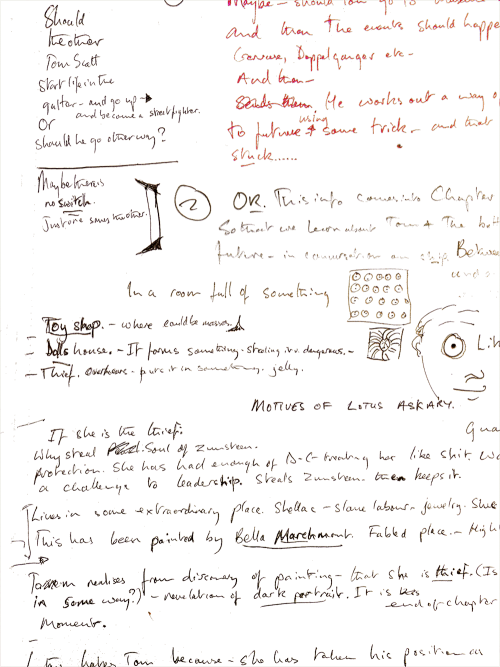 Should
the other
Tom Scatt
start life in the
gutter - and go up →
and become a streetfighter.
Or
should he go other way?
Maybe - should
and then the events should happe
Doppelganger etc -
And then -
Sends them. He works out a way o
to future using some trick - and that
stuck......
Maybe there is
no switch.
Just one saves the other.
2
OR. This info comes into Chapter
So that we learn about Tom + The
future - in conversation on ship. Betwee
In a room full of something
Toy shop. - where could be masses.
- Dolls house. - It forms something - stealing it is dangerous. -
- Thief. Overhears - puts it in something. jelly.
MOTIVES OF LOTUS ASKARY.
If she is the thief.
Why steal Soul of Zumsteen.
protection. She has had enough of D-C- treating her like shit.
a challenge to leadership. Steals Zumsteen. then keeps it.
Lives in some extraordinary place. Shellac - slave labour - jewelry. She
This has been painted by Bella Marchmont. Fabled place. - High
realises from discovery of painting - that she is thief. (Is
in some way?) - revelation of dark portrait. It is
end of chapter
Moment.
hates Tom because - she has taken his position as